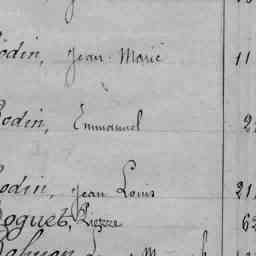 Rodin, Jean Marie 11
Rodin, Emmanuel 2
Rodin, Jean Louis 21
Roguet, Pierre 62